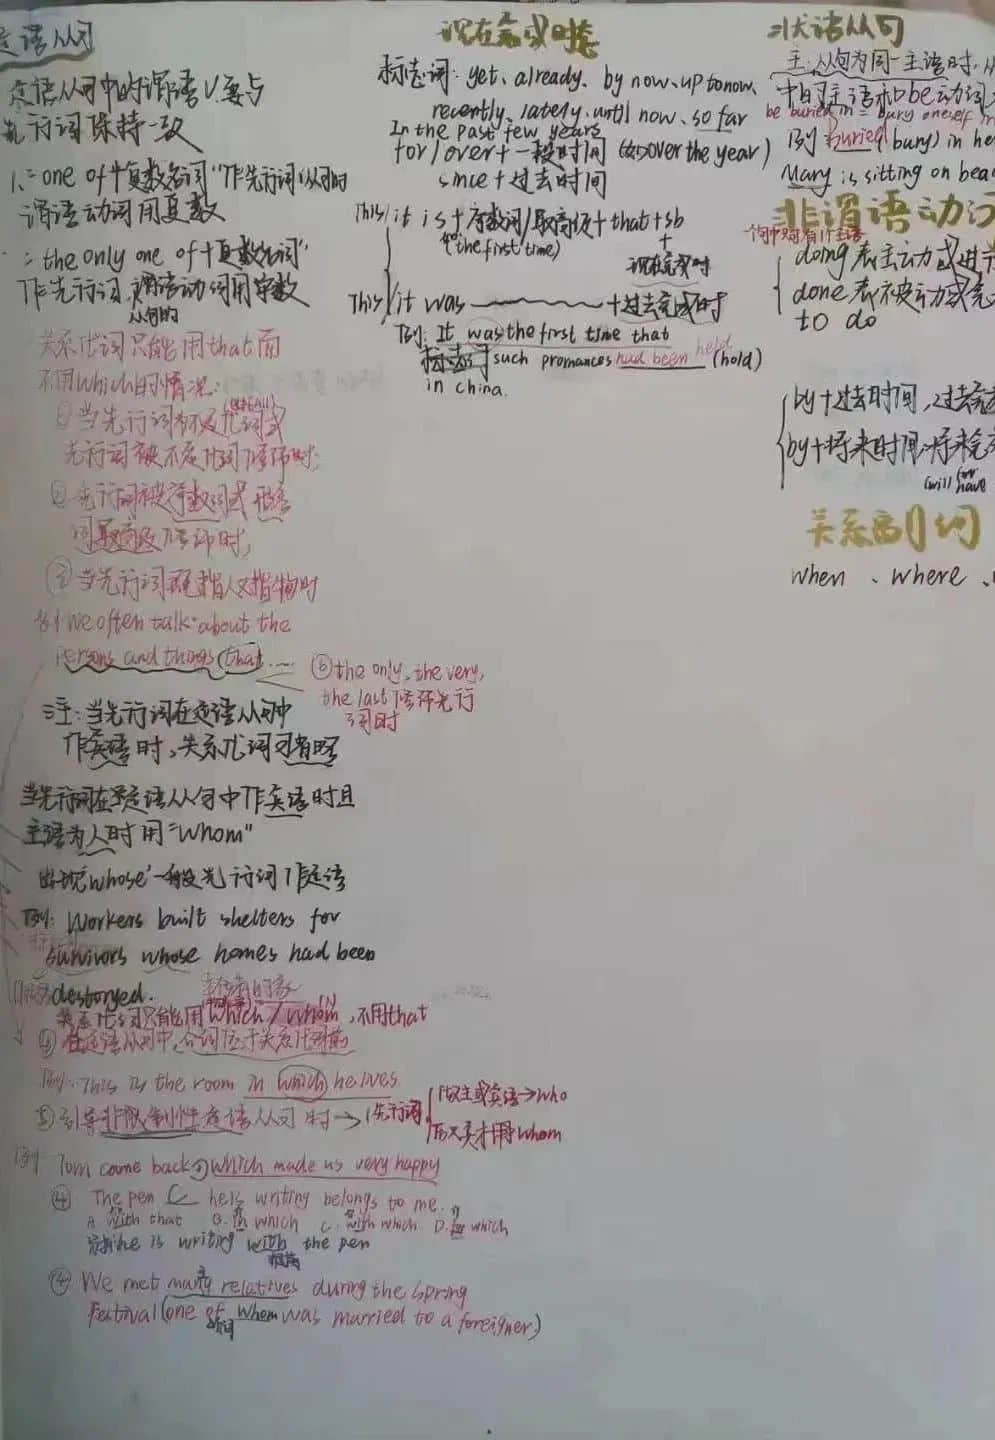 定语从句
定语从句中的谓语V要与
先行词保持一致
1、"one of+复数名词"作先行词,从句的
谓语动词用复数
"the only one of+复数名词"
作先行词,谓语动词用单数
从句的
关系代词只能用that而
不用which的情况:
①当先行词为不定代词或
先行词被不定代词修饰时;
②先行词被序数词或形容
词最高级修饰时,
③当先行词既指人又指物时
例 We often talk about the
persons and things that.....
⑥the only, the very,
the last 修饰先行
词时
注:当先行词在定语从句中
作宾语时,关系代词可省略
当先行词在定语从句中作宾语时且
主语为人时用"whom"
出现"whose"一般先行词作定语
例: Workers built shelters for
survivors whose homes had been
destoryed.
关系代词只能用which/whom,不用that
④在定语从句中,介词位于关系代词前
例:This is the room in which he lives
⑤引导非限制性定语从句时→先行词
作主或宾语→who
作宾才用whom
例 Tom came back, which made us very happy
④ The pen he is writing belongs to me.
A. with that B. in which C. with which D. which
he is writing with the pen
④ We met many relatives during the Spring
Festival (one of whom was married to a foreigner)
现在完成时态
标志词: yet、already、by now、up to now、
recently、lately、until now、so far
In the past few years
for/over+一段时间 (如over the year)
since+过去时间
This/it is+序数词/最高级+that+sb
(the first time)
+
现在完成时
This/it was +过去完成时
例: It was the first time that
such promances had been held (hold)
in china.
状语从句
主、从句为同一主语时,从
中的主语和be动词
be buried in = bury oneself in
例 Buried (bury) in he
Mary is sitting on bea
非谓语动词
一个句中只有一个主语
doing表主动或进行
done表被动或完
to do
by+过去时间,过去完
by+将来时间,将来完
(will have
for
关系副词
when、where、